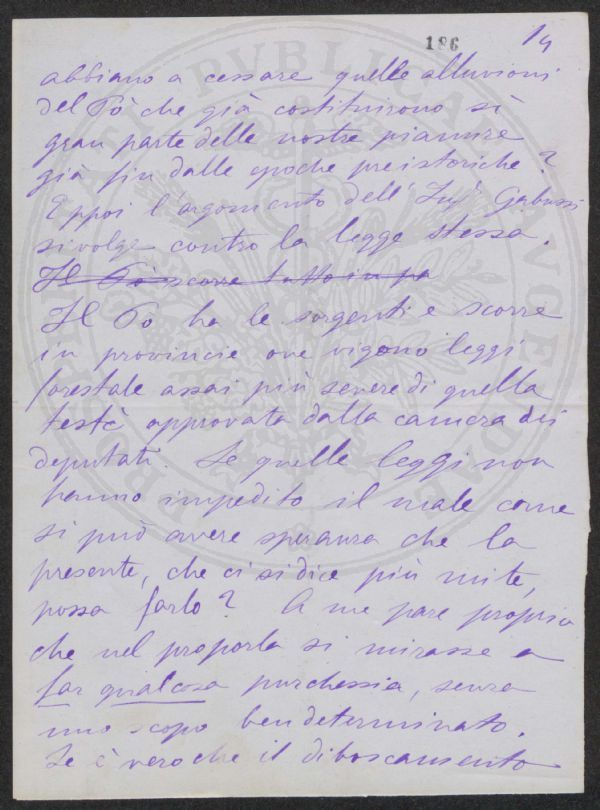 186
14
abbiano a cessare quelle alluvioni
del Pò che già costituirono sì
gran parte delle nostre pianure
già fin dalle epoche preistoriche?
Eppoi l'argomento dell' Ing. Gabussi
si volge contro la legge stessa.
Il Pò scorre tutto in p
Il Po ha le sorgenti e scorre
in provincie ove vigono leggi
forestale assai più severe di quella
testè approvata dalla camera dei
deputati. Se quelle leggi non
hanno impedito il male come
si può avere speranza che la
presente, che ci si dice più mite,
possa farlo? A me pare proprio
che nel proporla si mirasse a
far qualcosa purchessia, senza
uno scopo ben determinato.
Se è vero che il diboscamento